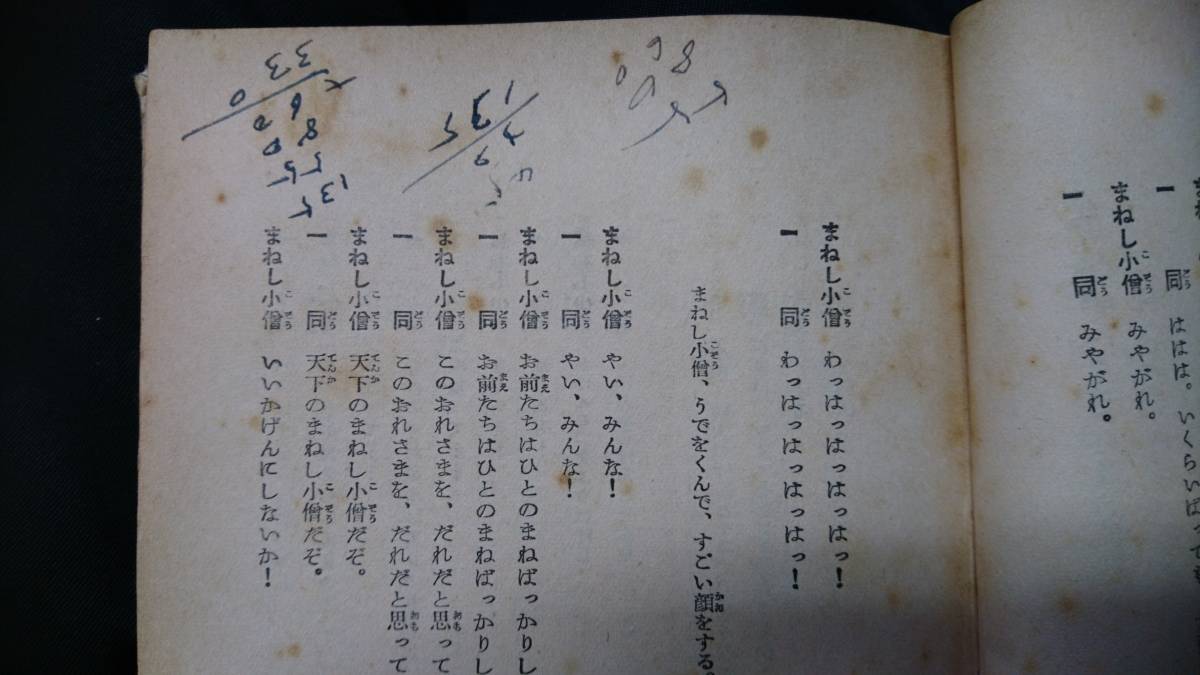 一同 ははは。いくらいばっても
まねし小僧 みやがれ。
一同 みやがれ。
まねし小僧 わっはっはっはっはっ!
一同 わっはっはっはっはっ!
まねし小僧、うでをくんで、すごい顔をする。
まねし小僧 やい、みんな!
一同 やい、みんな!
まねし小僧 お前たちはひとのまねばっかりし
一同 お前たちはひとのまねばっかりし
まねし小僧 このおれさまを、だれだと思って
一同 このおれさまを、だれだと思って
まねし小僧 天下のまねし小僧だぞ。
一同 天下のまねし小僧だぞ。
まねし小僧 いいかげんにしないか!